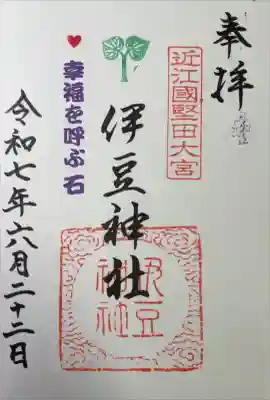 奉拝
近江國堅田大宮
伊豆神社
伊豆
神社
♥幸福を呼ぶ石
令和七年六月二十二日